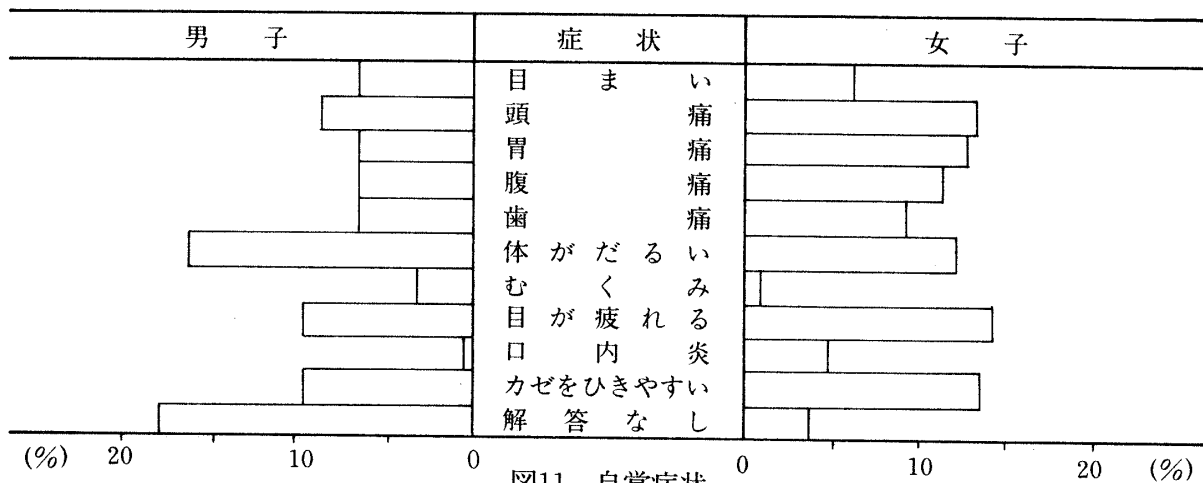 男子 症状 女子
目まい
頭痛
胃痛
腹痛
歯痛
体がだるい
むくみ
目が疲れる
口内炎
カゼをひきやすい
解答なし
(%) 20 10 0 0 10 20 (%)
図11 自覚症状